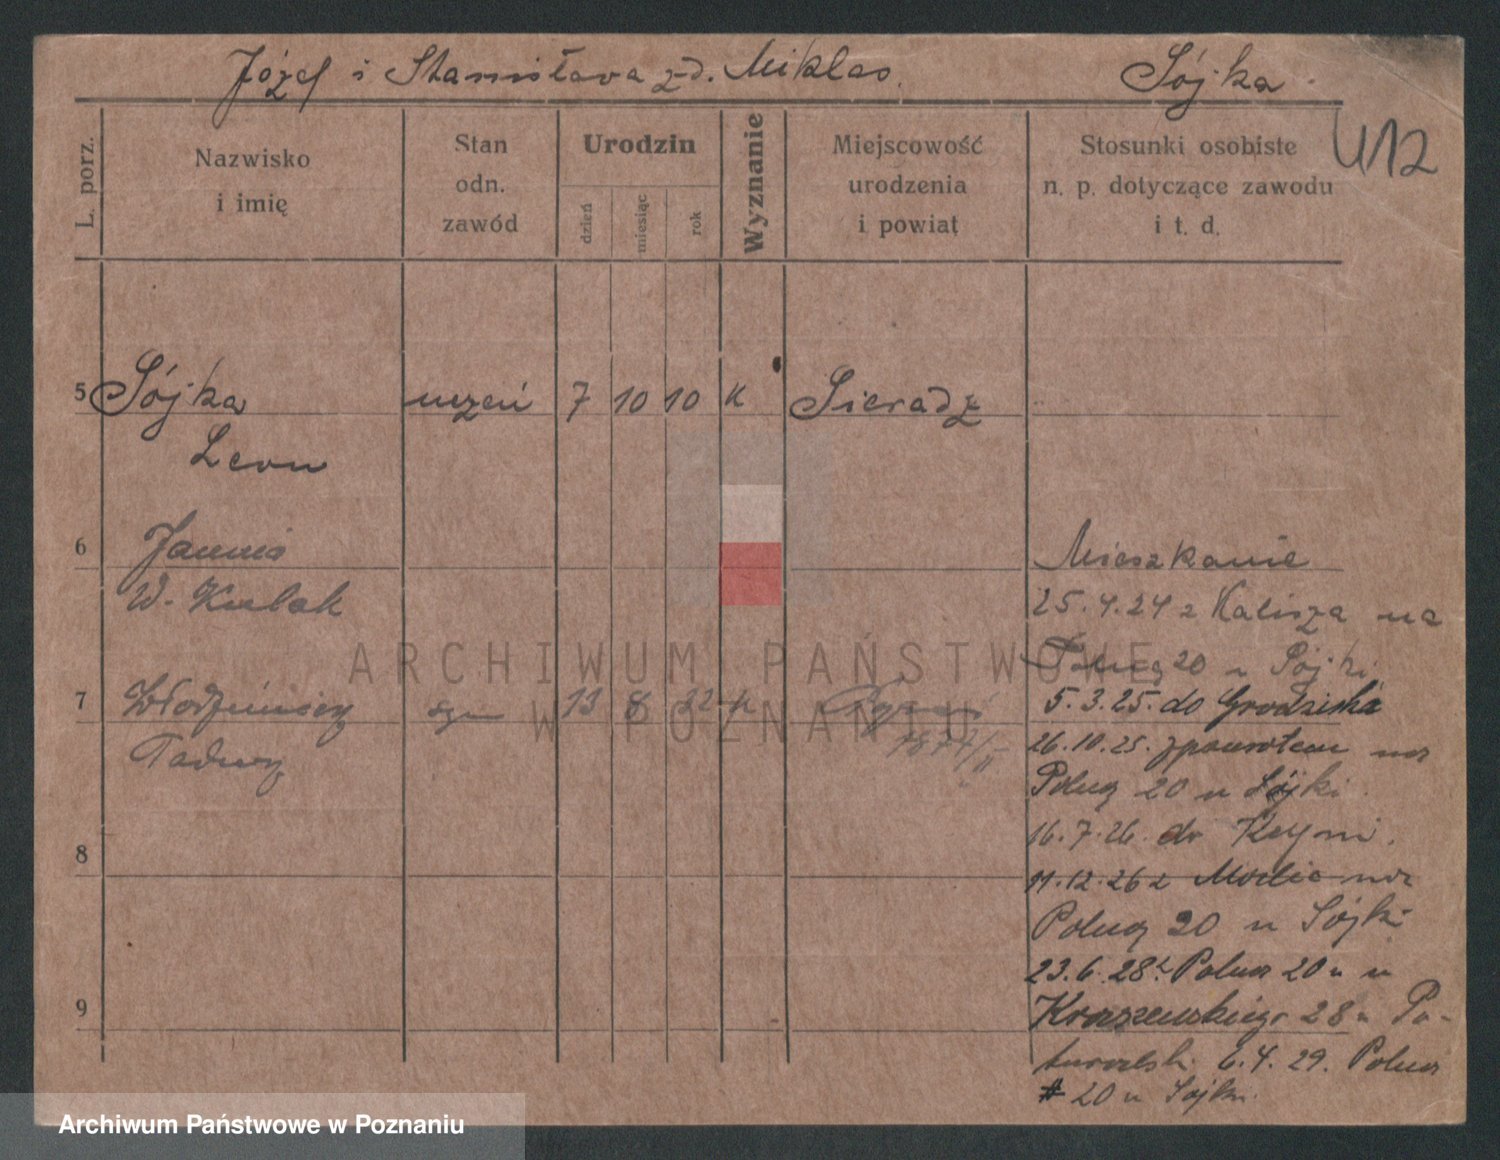 Józef i Stanisława z d. Miklas. Sójka.
412
L. porz.
Nazwisko
i imię
Stan
odn.
zawód
Urodzin
dzień
miesiąc
rok
Wyznanie
Miejscowość
urodzenia
i powiat
Stosunki osobiste
n. p. dotyczące zawodu
i t. d.
5 Sójka uczeń 7 10 10 K Sieradz
Leon
6 Janina
W. Kulak
7 Włodzimierz syn 13 8 22 K
Tadeusz
8
9
Mieszkanie
25.4.24 z Kalisza na
20 u Sójki
5.3.25. do Grodziska
26.10.25. z powrotem na
Polną 20 u Sójki.
16.7.26. do Kcyni.
11.12.26 z na
Polną 20 u Sójki
23.6.28 Polna 20
Kraszewskiego 28
6.4.29. Polna
20 u Sójki.
ARCHIWUM PAŃSTWOWE
W POZNANIU
Archiwum Państwowe w Poznaniu